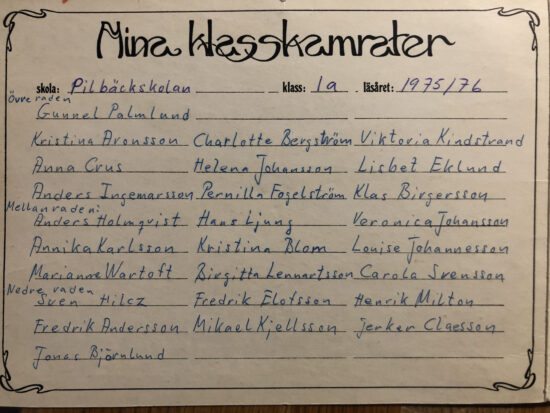 Mina klasskamrater
skola: Pilbäckskolan klass: 1a läsåret: 1975/76
Övre raden
Gunnel Palmlund
Kristina Aronsson Charlotte Bergström Viktoria Kindstrand
Anna Crus Helena Johansson Lisbet Eklund
Anders Ingemarsson Pernilla Fogelström Klas Birgersson
Mellanraden:
Anders Holmqvist Hans Ljung Veronica Johansson
Annika Karlsson Kristina Blom Louise Johannesson
Marianne Wartoft Birgitta Lennartsson Carola Svensson
Nedre raden
Sven Hilcz Fredrik Elofsson Henrik Milton
Fredrik Andersson Mikael Kjellsson Jerker Claesson
Jonas Björnlund